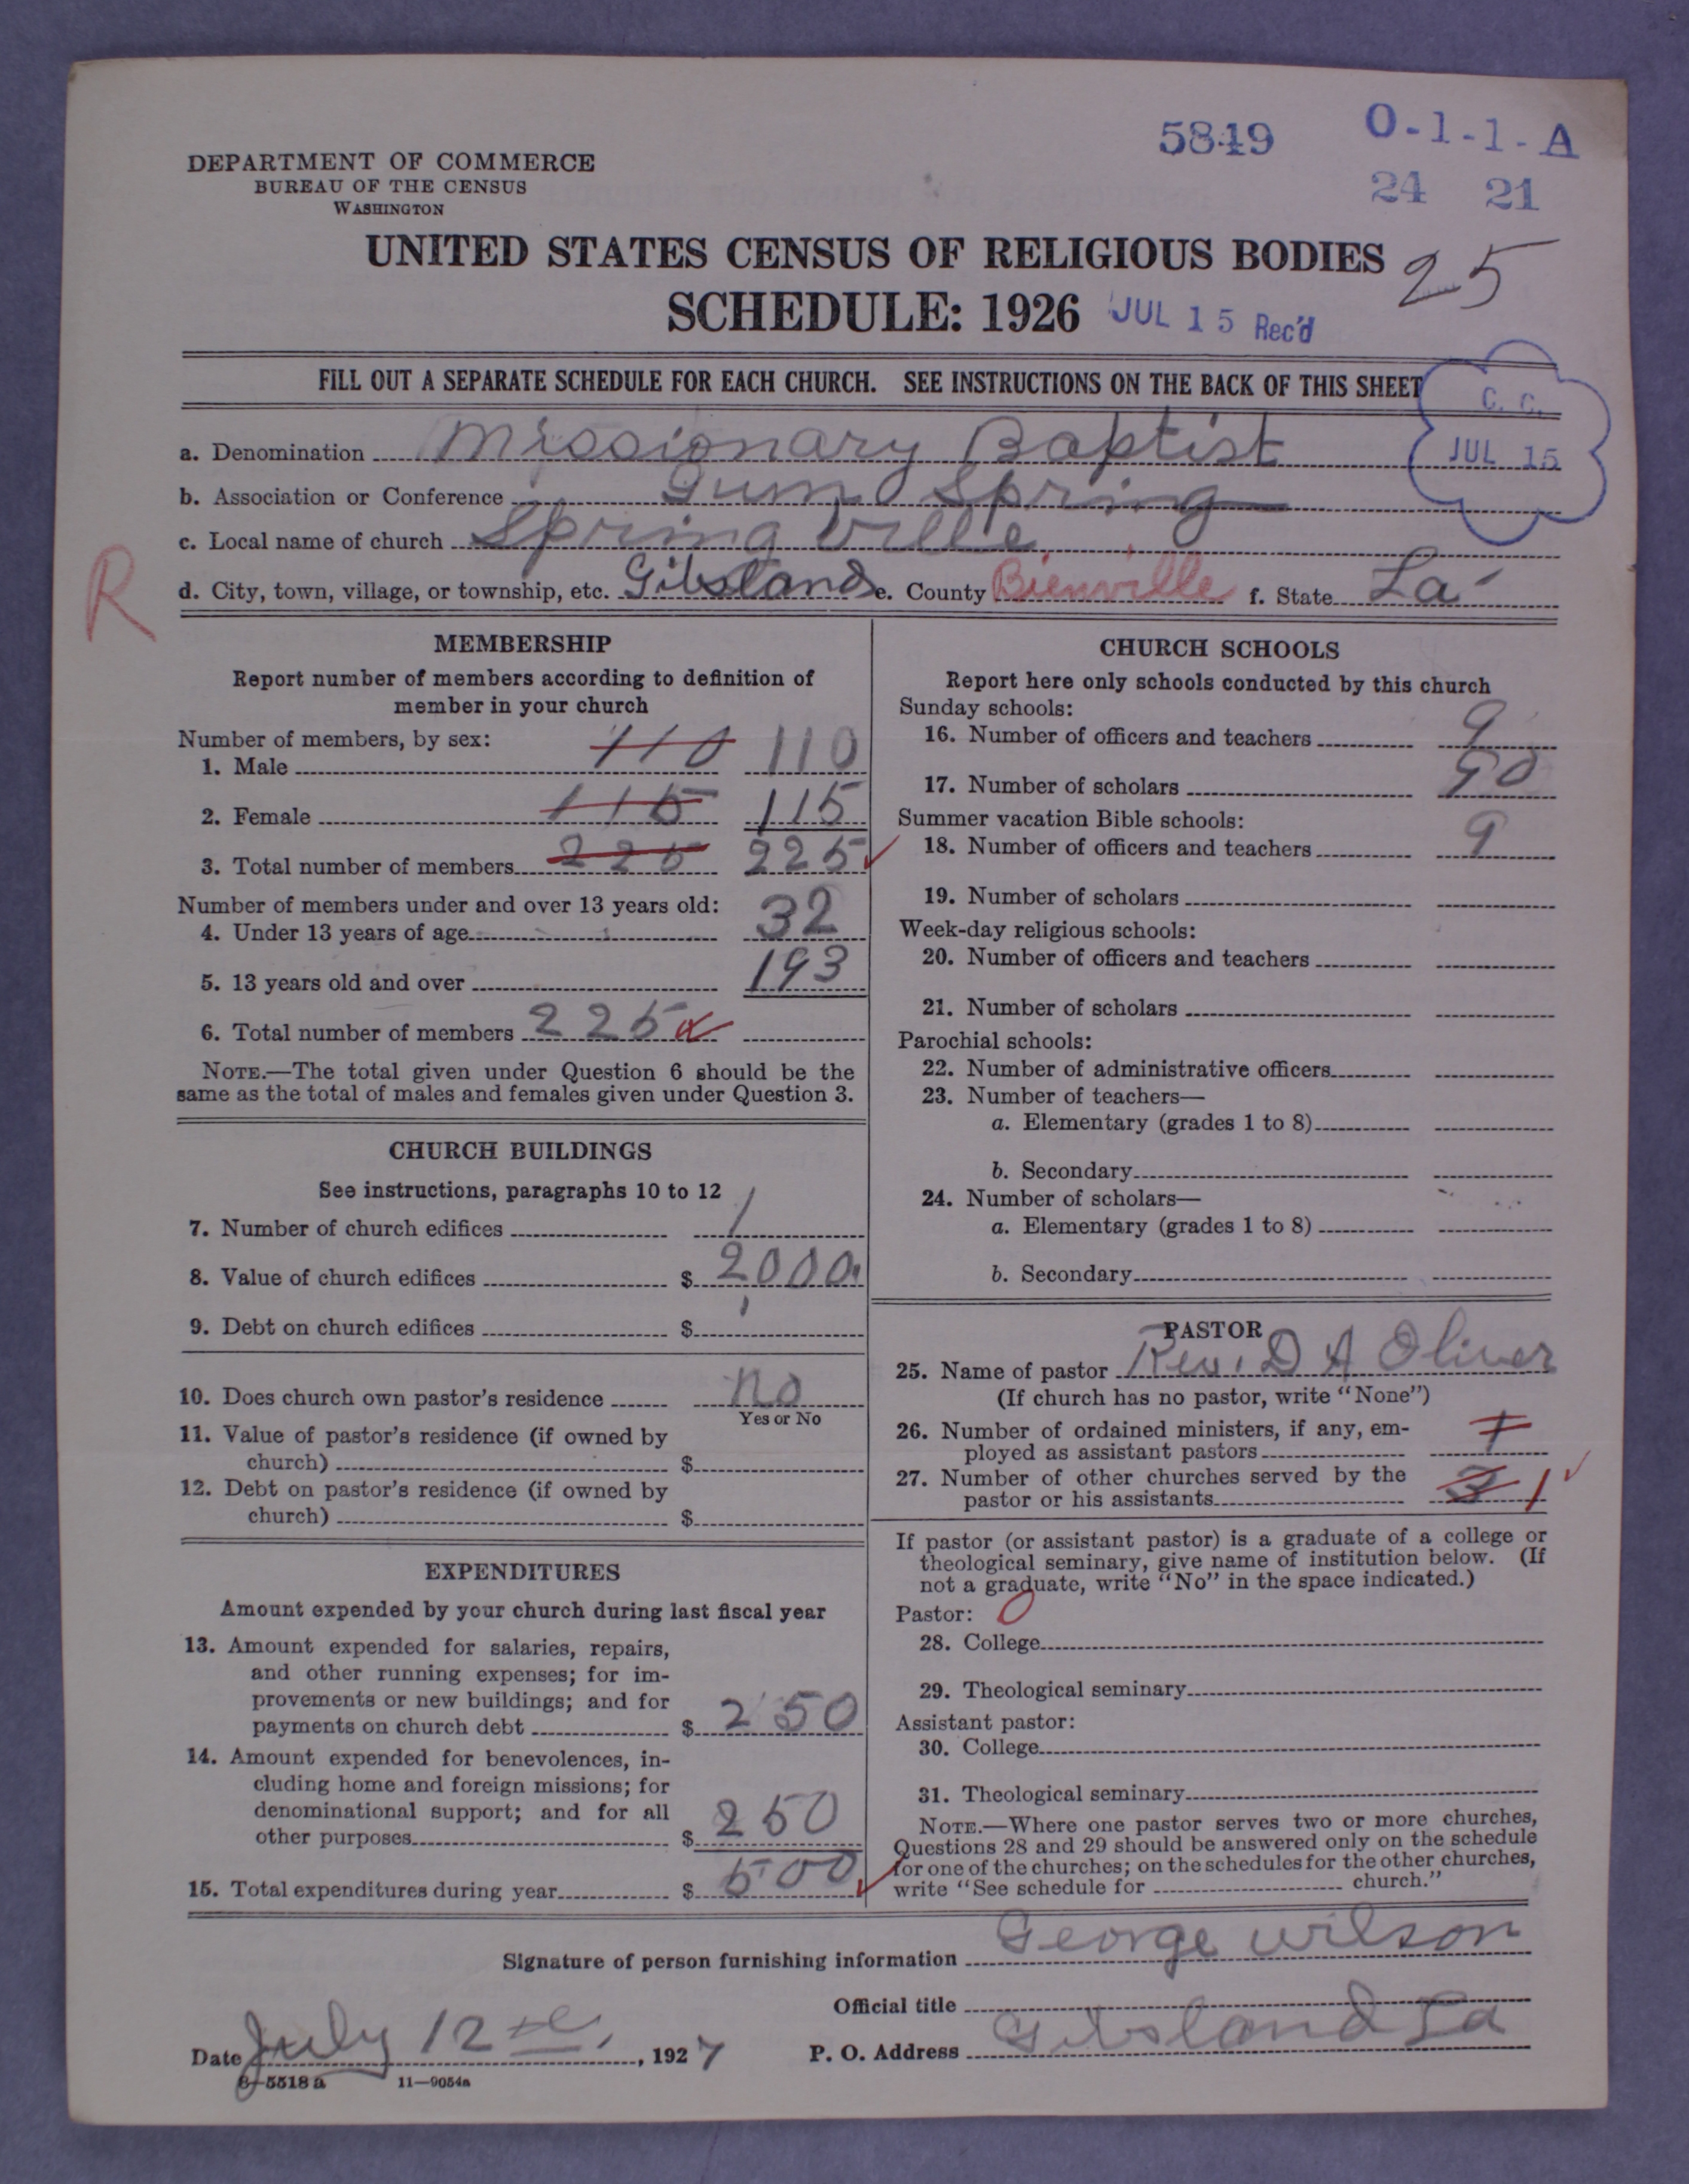 5849
O-1-1-A
24 21
DEPARTMENT OF COMMERCE
BUREAU OF THE CENSUS
WASHINGTON
UNITED STATES CENSUS OF RELIGIOUS BODIES
25
SCHEDULE: 1926
JUL 15 Rec'd
FILL OUT A SEPARATE SCHEDULE FOR EACH CHURCH. SEE INSTRUCTIONS ON THE BACK OF THIS SHEET
C. C.
JUL 15
a. Denomination Missionary Baptist
b. Association or Conference Gum Spring
c. Local name of church Spring ville
R
d. City, town, village, or township, etc. Gibsland e. County Bienville f. State La
MEMBERSHIP
Report number of members according to definition of
member in your church
Number of members, by sex:
1. Male 110 110
2. Female 115 115
3. Total number of members 225 225
Number of members under and over 13 years old:
4. Under 13 years of age 32
5. 13 years old and over 193
6. Total number of members 225
NOTE.—The total given under Question 6 should be the
same as the total of males and females given under Question 3.
CHURCH BUILDINGS
See instructions, paragraphs 10 to 12
7. Number of church edifices 1
8. Value of church edifices $ 2000
9. Debt on church edifices $
10. Does church own pastor's residence no
Yes or No
11. Value of pastor's residence (if owned by
church) $
12. Debt on pastor's residence (if owned by
church) $
EXPENDITURES
Amount expended by your church during last fiscal year
13. Amount expended for salaries, repairs,
and other running expenses; for im-
provements or new buildings; and for
payments on church debt $ 250
14. Amount expended for benevolences, in-
cluding home and foreign missions; for
denominational support; and for all
other purposes $ 250
15. Total expenditures during year $ 500
CHURCH SCHOOLS
Report here only schools conducted by this church
Sunday schools:
16. Number of officers and teachers 9
17. Number of scholars 90
Summer vacation Bible schools:
18. Number of officers and teachers 9
19. Number of scholars
Week-day religious schools:
20. Number of officers and teachers
21. Number of scholars
Parochial schools:
22. Number of administrative officers
23. Number of teachers—
a. Elementary (grades 1 to 8)
b. Secondary
24. Number of scholars—
a. Elementary (grades 1 to 8)
b. Secondary
PASTOR
25. Name of pastor Rev. D A Oliver
(If church has no pastor, write "None")
26. Number of ordained ministers, if any, em-
ployed as assistant pastors 1
27. Number of other churches served by the
pastor or his assistants 3 1
If pastor (or assistant pastor) is a graduate of a college or
theological seminary, give name of institution below. (If
not a graduate, write "No" in the space indicated.)
Pastor: 0
28. College
29. Theological seminary
Assistant pastor:
30. College
31. Theological seminary
NOTE.—Where one pastor serves two or more churches,
Questions 28 and 29 should be answered only on the schedule
for one of the churches; on the schedules for the other churches,
write "See schedule for church."
Signature of person furnishing information George wilson
Official title
Date July 12th, 1927
P. O. Address Gibsland La
8—5518 a 11—9054a